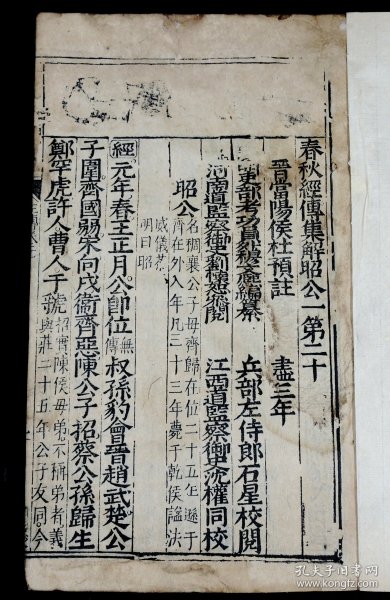 春秋經傳集解昭公一第二十
晉當陽侯杜預註　盡三年
兵部左侍郎石星校閱
河南道監察御史劉懷恕閱　江西道監察御史沈權同校
昭公
名稠襄公子母齊歸在位二十五年遜于
齊在外八年凡三十三年薨于乾侯謚法
威儀恭
明曰昭
經元年春王正月公卽位無傳叔孫豹會晉趙武楚公
子圍齊國弱宋向戌衞齊惡陳公子招蔡公孫歸生
鄭罕虎許人曹人于虢
招實陳侯母弟不稱弟者義
與莊二十五年公子友同今
孔夫子旧书网